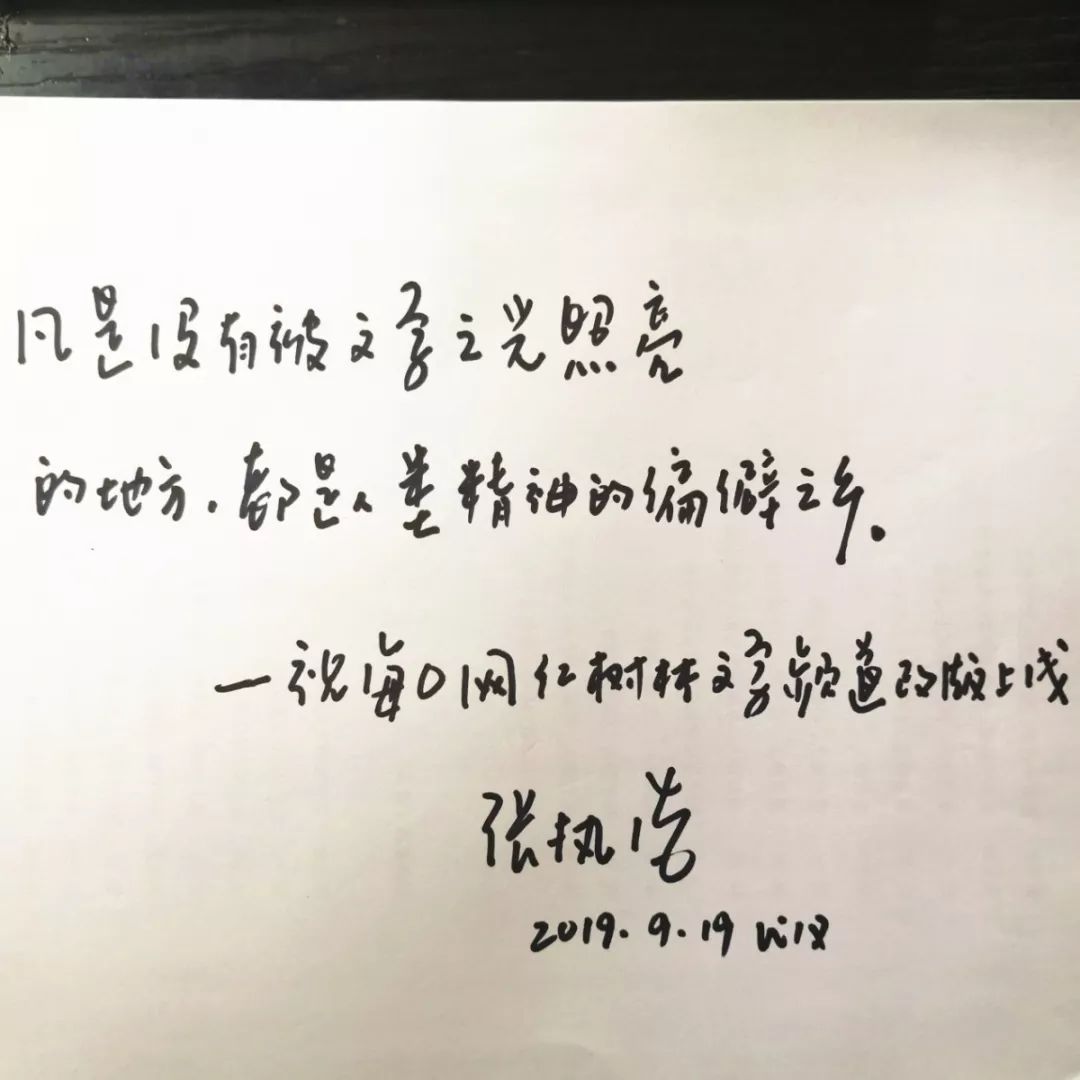 凡是没有被文学之光照亮
的地方,都是人类精神的偏僻之乡。
—祝每日网红树林文学频道改版上线
张执浩
2019.9.19 武汉